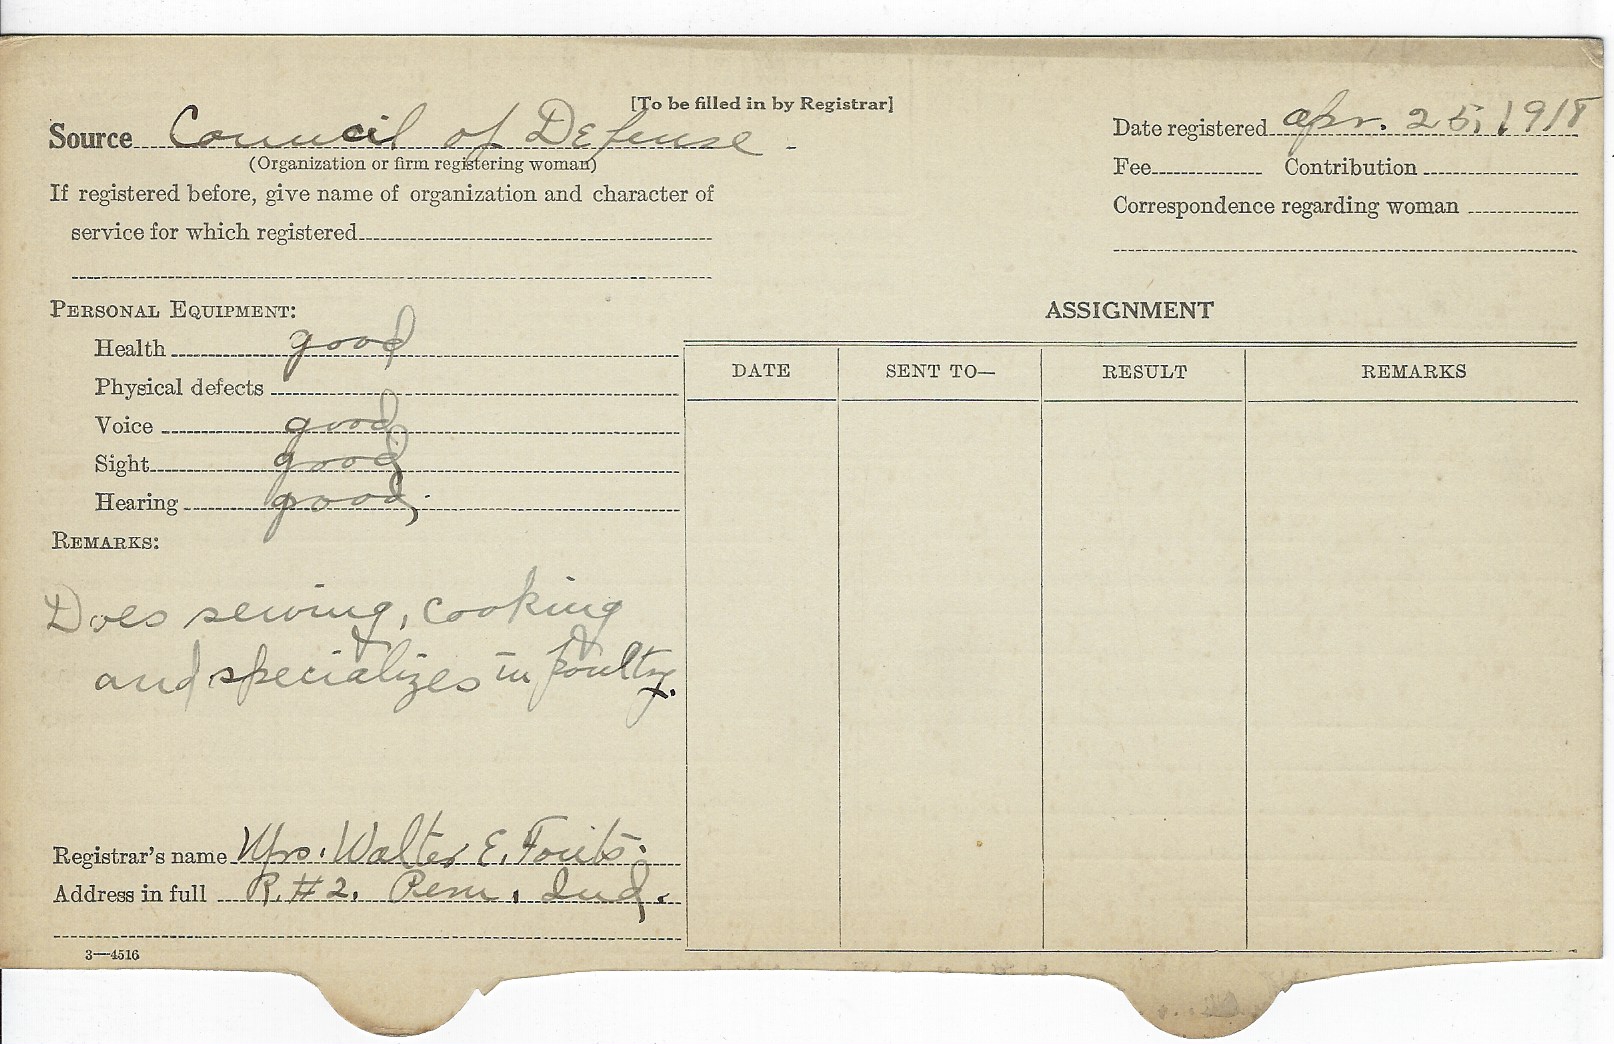 [To be filled in by Registrar]
Source Council of Defense.
(Organization or firm registering woman)
If registered before, give name of organization and character of
service for which registered
Date registered Apr. 25, 1918
Fee Contribution
Correspondence regarding woman
PERSONAL EQUIPMENT:
Health good
Physical defects
Voice good
Sight good
Hearing good.
REMARKS:
Does sewing, cooking
and specializes in poultry.
Registrar's name Mrs. Walter E. Fouts.
Address in full R. #2. Peru, Ind.
3—4516
ASSIGNMENT
DATE SENT TO— RESULT REMARKS